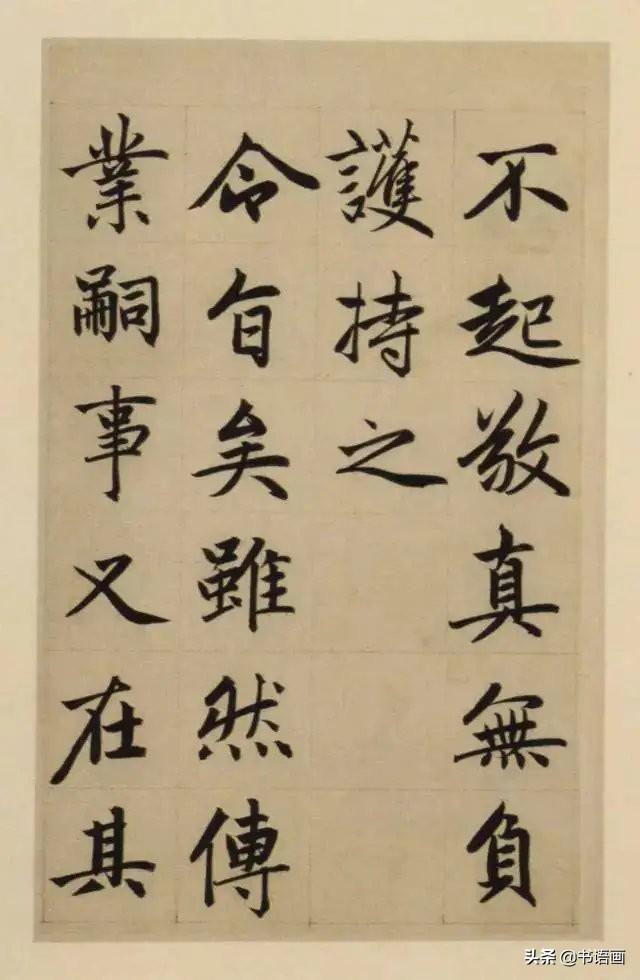 不起敬真無負
護持之
令旨矣雖然傳
業嗣事又在其
头条 @书语画